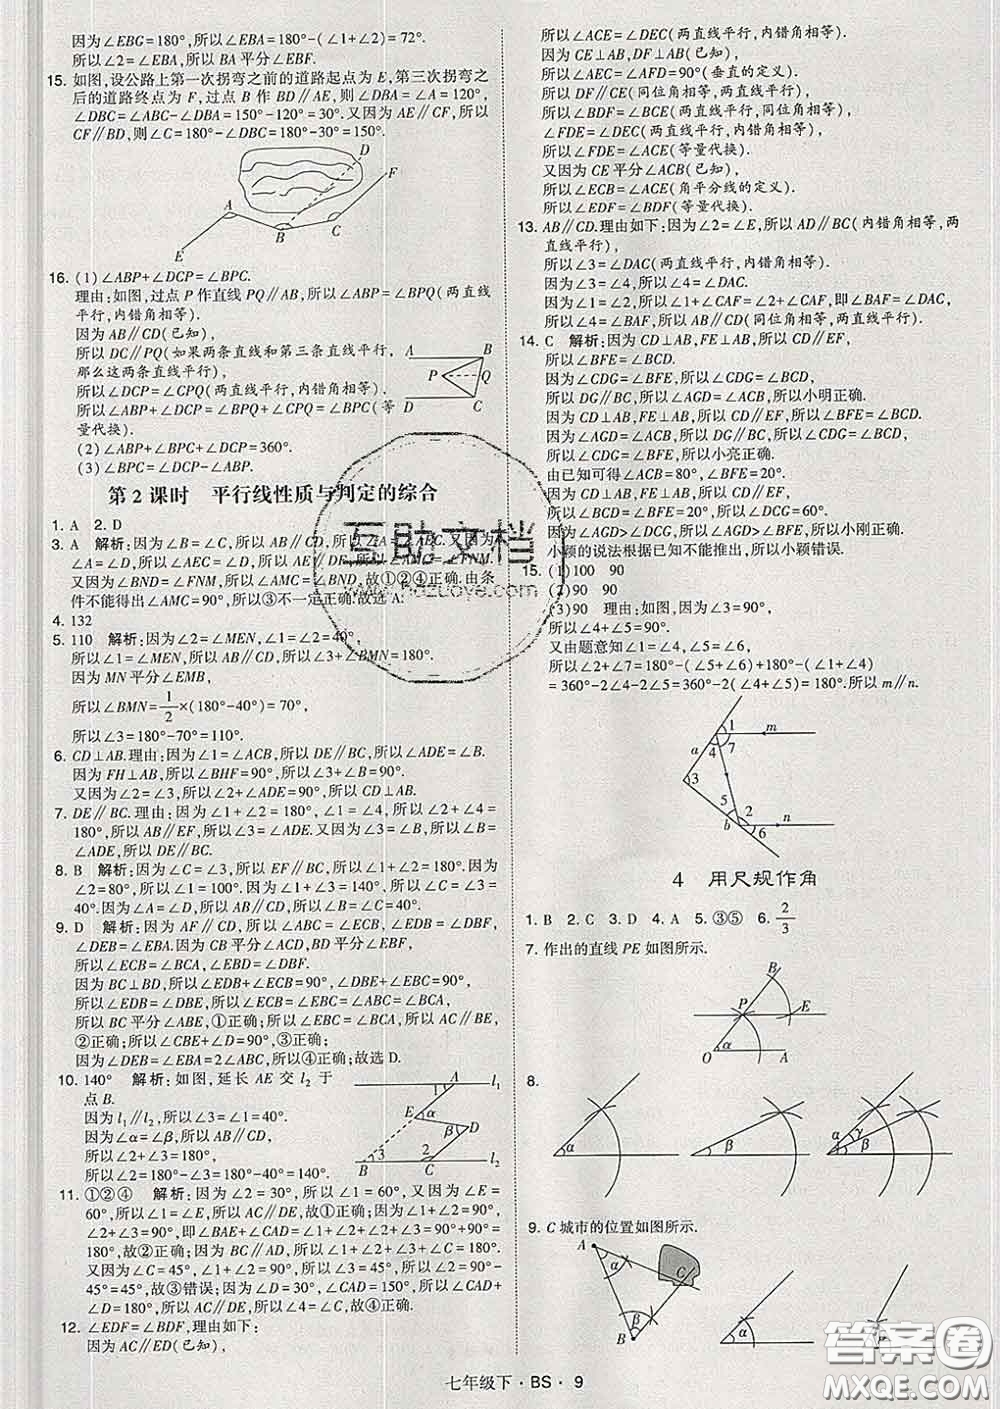 因为∠EBG=180°,所以∠EBA=180°-(∠1+∠2)=72°.
所以∠2=∠EBA,所以BA平分∠EBF.
15. 如图,设公路上第一次拐弯之前的道路起点为E,第三次拐弯之
后的道路终点为F,过点B作BD∥AE,则∠DBA=∠A=120°,
∠DBC=∠ABC-∠DBA=150°-120°=30°.又因为AE∥CF,所以
CF∥BD,则∠C=180°-∠DBC=180°-30°=150°.
D
F
A
B
C
E
16. (1)∠ABP+∠DCP=∠BPC.
理由:如图,过点P作直线PQ∥AB,所以∠ABP=∠BPQ(两直线
平行,内错角相等).
因为AB∥CD(已知),
所以DC∥PQ(如果两条直线和第三条直线平行,
那么这两条直线平行),
所以∠DCP=∠CPQ(两直线平行,内错角相等).
所以∠ABP+∠DCP=∠BPQ+∠CPQ=∠BPC(等
量代换).
A B
P Q
D C
(2)∠ABP+∠BPC+∠DCP=360°.
(3)∠BPC=∠DCP-∠ABP.
第2课时 平行线性质与判定的综合
1. A 2. D
3. A 解析:因为∠B=∠C,所以AB∥CD,所以∠A=∠AEC.又因为
∠A=∠D,所以∠AEC=∠D,所以AE∥DF,所以∠AMC=∠FNM.
又因为∠BND=∠FNM,所以∠AMC=∠BND,故①②④正确.由条
件不能得出∠AMC=90°,所以③不一定正确.故选A.
4. 132
5. 110 解析:因为∠2=∠MEN,∠1=∠2=40°,
所以∠1=∠MEN,所以AB∥CD,所以∠3+∠BMN=180°.
因为MN平分∠EMB,
所以∠BMN=1/2×(180°-40°)=70°,
所以∠3=180°-70°=110°.
6. CD⊥AB.理由:因为∠1=∠ACB,所以DE∥BC,所以∠2=∠DCB.
因为FH⊥AB,所以∠BHF=90°,所以∠B+∠3=90°.
又因为∠2=∠3,所以∠2+∠ADE=90°,所以CD⊥AB.
7. DE∥BC.理由:因为∠1+∠2=180°,∠1=∠4,所以∠2+∠4=
180°,所以AB∥EF,所以∠3=∠ADE.又因为∠3=∠B,所以∠B=
∠ADE,所以DE∥BC.
8. B 解析:因为∠C=∠3,所以EF∥BC,所以∠1+∠2=180°.因为
∠2=80°,所以∠1=100°.因为∠1+∠3=140°,所以∠3=40°.
因为∠A=∠D,所以AB∥CD,所以∠B=∠C=40°.
9. D 解析:因为AF∥CD,所以∠ABC=∠ECB,∠EDB=∠DBF,
∠DEB=∠EBA.因为CB平分∠ACD,BD平分∠EBF,
所以∠ECB=∠BCA,∠EBD=∠DBF.
因为BC⊥BD,所以∠EDB+∠ECB=90°,∠DBE+∠EBC=90°,
所以∠EDB=∠DBE,所以∠ECB=∠EBC=∠ABC=∠BCA,
所以BC平分∠ABE,①正确;所以∠EBC=∠BCA,所以AC∥BE,
②正确;所以∠BCD+∠D=90°,③正确;
因为∠DEB=∠EBA=2∠ABC,所以④正确;故选D.
10. 140° 解析:如图,延长AE交l2于
点B.
因为l1∥l2,所以∠3=∠1=40°.
因为∠α=∠β,所以AB∥CD,
所以∠2+∠3=180°,
所以∠2=180°-∠3=180°-40°=140°.
A l1
1
E α
β D
3 2
B C l2
11. ①②④ 解析:因为∠2=30°,所以∠1=60°,又因为∠E=
60°,所以∠1=∠E,所以AC∥DE,故①正确;因为∠1+∠2=90°,
∠2+∠3=90°,即∠BAE+∠CAD=∠1+∠2+∠2+∠3=90°+90°=
180°,故②正确;因为BC∥AD,所以∠1+∠2+∠3+∠C=180°.
又因为∠C=45°,∠1+∠2=90°,所以∠3=45°,所以∠2=90°-
45°=45°,故③错误;因为∠D=30°,∠CAD=150°,所以∠CAD+
∠D=180°,所以AC∥DE,所以∠4=∠C,故④正确.
12. ∠EDF=∠BDF,理由如下:
因为AC∥ED(已知),
所以∠ACE=∠DEC(两直线平行,内错角相等).
因为CE⊥AB,DF⊥AB(已知),
所以∠AEC=∠AFD=90°(垂直的定义).
所以DF∥CE(同位角相等,两直线平行).
所以∠BDF=∠BCE(两直线平行,同位角相等).
∠FDE=∠DEC(两直线平行,内错角相等).
所以∠FDE=∠ACE(等量代换).
又因为CE平分∠ACB(已知).
所以∠ECB=∠ACE(角平分线的定义).
所以∠EDF=∠BDF(等量代换).
13. AB∥CD.理由如下:因为∠2=∠E,所以AD∥BC(内错角相等,两
直线平行),
所以∠3=∠DAC(两直线平行,内错角相等).
因为∠3=∠4,所以∠4=∠DAC.
因为∠1=∠2,所以∠1+∠CAF=∠2+∠CAF,即∠BAF=∠DAC,
所以∠4=∠BAF,所以AB∥CD(同位角相等,两直线平行).
14. C 解析:因为CD⊥AB,FE⊥AB,所以CD∥EF,
所以∠BFE=∠BCD.
因为∠CDG=∠BFE,所以∠CDG=∠BCD,
所以DG∥BC,所以∠AGD=∠ACB,所以小明正确.
因为CD⊥AB,FE⊥AB,所以CD∥EF,所以∠BFE=∠BCD.
因为∠AGD=∠ACB,所以DG∥BC,所以∠CDG=∠BCD,
所以∠CDG=∠BFE,所以小亮正确.
由已知可得∠ACB=80°,∠BFE=20°.
所以∠BCD=∠BFE=20°,所以∠DCG=60°.
因为∠AGD>∠DCG,所以∠AGD>∠BFE,所以小刚正确.
小颖的说法根据已知不能推出,所以小颖错误.
15. (1)100 90
(2)90 90
(3)90 理由:如图,因为∠3=90°,
所以∠4+∠5=90°.
又由题意知∠1=∠4,∠5=∠6,
所以∠2+∠7=180°-(∠5+∠6)+180°-(∠1+∠4)
=360°-2∠4-2∠5=360°-2(∠4+∠5)=180°.所以m∥n.
1 m
a 4 7
3
5 2 n
b 6
4 用尺规作角
1. B 2. C 3. D 4. A 5. ③⑤ 6. 2/3
7. 作出的直线PE如图所示.
B
P E
α
O A
8.
α β α γ β
9. C城市的位置如图所示.
A
α C
β
B
α
P
互助文档
www.hdzuoye.com
答案圈
MXQE.COM
七年级下·BS·9